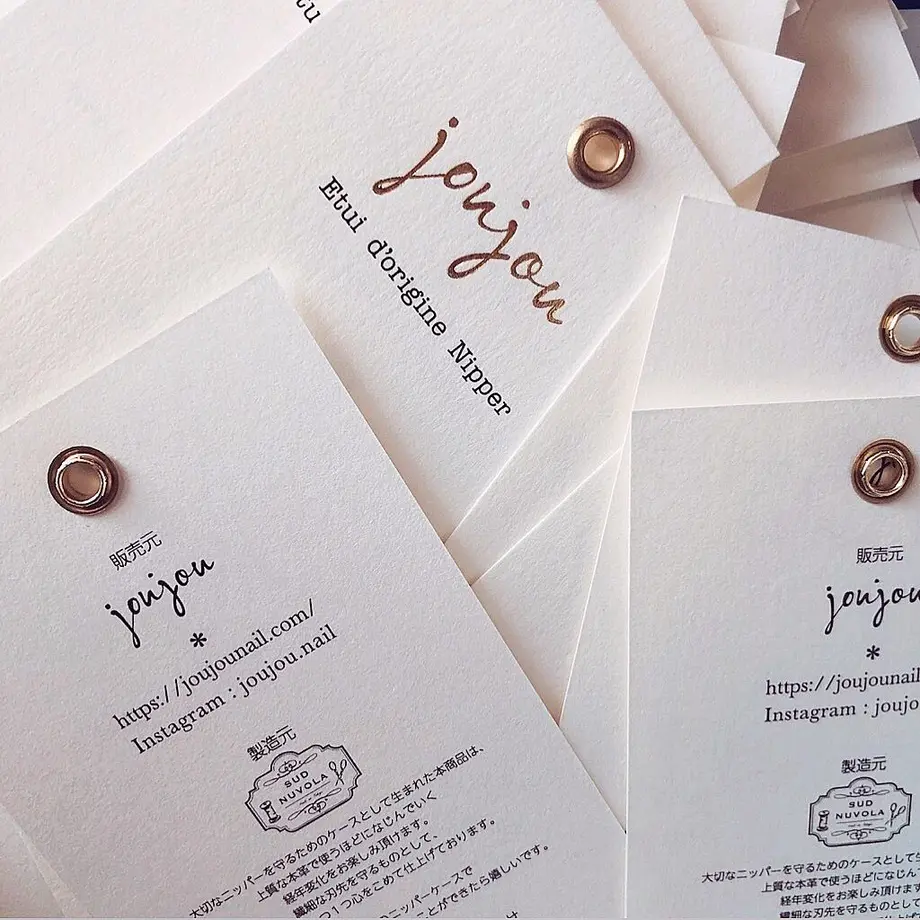 tu
joujou
Etui d'origine Nipper
販売元
joujou
*
https://joujounail.com/
Instagram : joujou.nail
製造元
SUD
NUVOLA
大切なニッパーを守るためのケースとして生まれた本商品は、
上質な本革で使うほどになじんでいく
経年変化をお楽しみ頂けます。
繊細な刃先を守るものとして、
つ1つ心をこめて仕上げております。
ニッパーケースで
ことができたら嬉しいです。
販売元
joujou
*
https://joujounail
Instagram : joujo
製造元
SUD
NUVOLA
大切なニッパーを守るためのケースとして
上質な本革で使うほどになじん
経年変化をお楽しみ頂けます
繊細な刃先を守るものとし